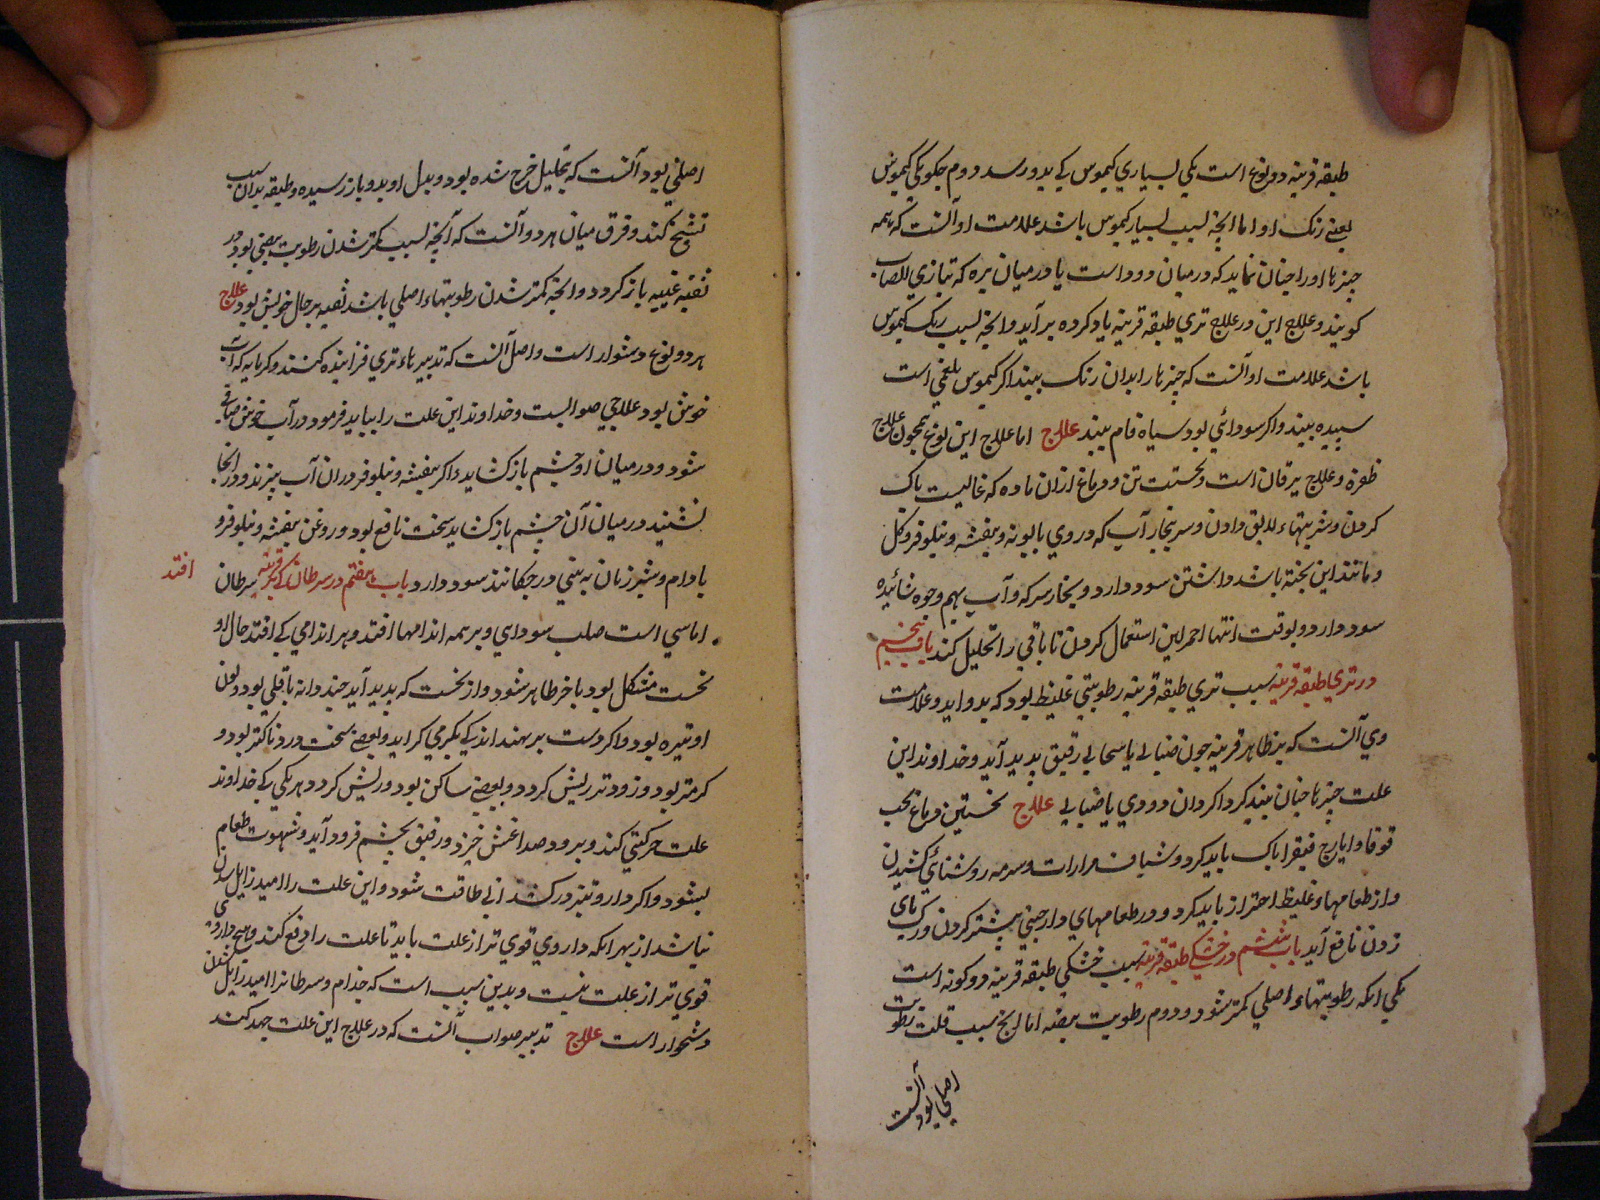 طبقه قرنیه دو نوع است یکی بسیاری کیموس که بدو رسد دوم چکونکی کیموس
یعنی رنک او اما انچه بسبب بسیار کیموس باشد علامت او آنست که همه
چیزها او را چنان نماید که درمیان دود است یا درمیان بره که بتازی الضباب
کویند و علاج این در علاج تری طبقه قرنیه یاد کرده براید و انچه بسبب رنک کیموس
باشد علامت او آنست که چیزها را بدان رنک بیند اکر کیموس بلغمی است
سپیده بیند و اکر سودائی بود سیاه فام بیند علاج اما علاج این نوع همچون علاج
ظفره و علاج یرقان است و نخست تن و دماغ ازان ماده که غالبست پاک
کردن و شربتهاء لایق دادن و سر ببخار آب که در وی بابونه و بنفشه و نیلوفر و کل
و مانند این پخته باشد داشتن سود دارد و بخار سرکه و آب بهم وجوه شائیده
سود دارد و بوقت انتها احمر لین استعمال کردن تا باقی را تحلیل کند باب پنجم
در تری طبقه قرنیه سبب تری طبقه قرنیه رطوبتی غلیظ بود که بدو اید و علامت
وی آنست که بر ظاهر قرنیه چون ضبابی یا سحابی رقیق پدید آید و خداوند این
علت چیزها چنان بیند کرداکردان دودی یا ضبابی علاج نخستین دماغ بحب
قوقایا و ایارج فیقرا پاک باید کرد و شیاف مرارات و سرمه روشنائی کشیدن
و از طعامهاء غلیظ احتراز باید کرد و در طعامهای دارچینی بیشتر کردن و رک
زدن نافع آید باب ششم در خشکی طبقه قرنیه سبب خشکی طبقه قرنیه دو کونه است
یکی انکه رطوبتهاء اصلی کمتر شود و دوم رطوبت بیضیه اما انچ بسبب قلت رطوبت
اصلی بود آنست
اصلی بود آنست که بتحلیل خرج شده بود و بدل او بدو باز نرسیده و طبقه بدان سبب
تشنج کند و فرق میان هر دو آنست که آنچه بسبب کمتر شدن رطوبت بیضی بود در
ثقبه عنبیه باز کردد و انچه کمتر شدن رطوبتهاء اصلی باشد ثقبه بر حال خویش بود علاج
هر دو نوع دشوار است و اصل آنست که تدبیرهاء تری فزاینده کنند و کرمابه که آب
خوش بود علاجی صوابست و خداوند این علت را بباید فرمود در آب خوش صافی
شود و در میان او چشم باز کشاید و اکر بنفشه و نیلوفر دران آب بپزند و در انجا
نشیند در میان آن چشم باز کشاید سخت نافع بود و روغن بنفشه و نیلوفر و
بادام و شیر زنان به بینی در چکانند سود دارد باب هفتم در سرطان که بر قرنیه افتد سرطان
اماسی است صلب سودای و بر همه اندامها افتد و بر اندامی که افتد حال او
نخست مشکل بود باخر ظاهر شود و از نخست که پدید آید چند دانه باقلی بود و لون
او تیره بود و اکر دست بر نهند اندکی بکرمی کراید و بعضی سخت دردناکتر بود و
کرمتر بود و زودتر ریش کردد و بعضی ساکن بود و ریش کردد هر یکی که خداوند
علت حرکتی کند و برود صداغش خیزد و رقیق بچشم فرود آید و شهوت طعام
بشود و اکر دارو تیز در کشد از بی طاقت شود و این علت را امید زایل شدن
نباشد از بهر انکه داروی قوی تر از علت باید تا علت را دفع کند و هیچ دارو
قوی تر از علت نیست و بدین سبب است که جذام و سرطانرا امید زایل شدن
دشخوار است علاج تدبیر صواب آنست که در علاج این علت جهد کنند